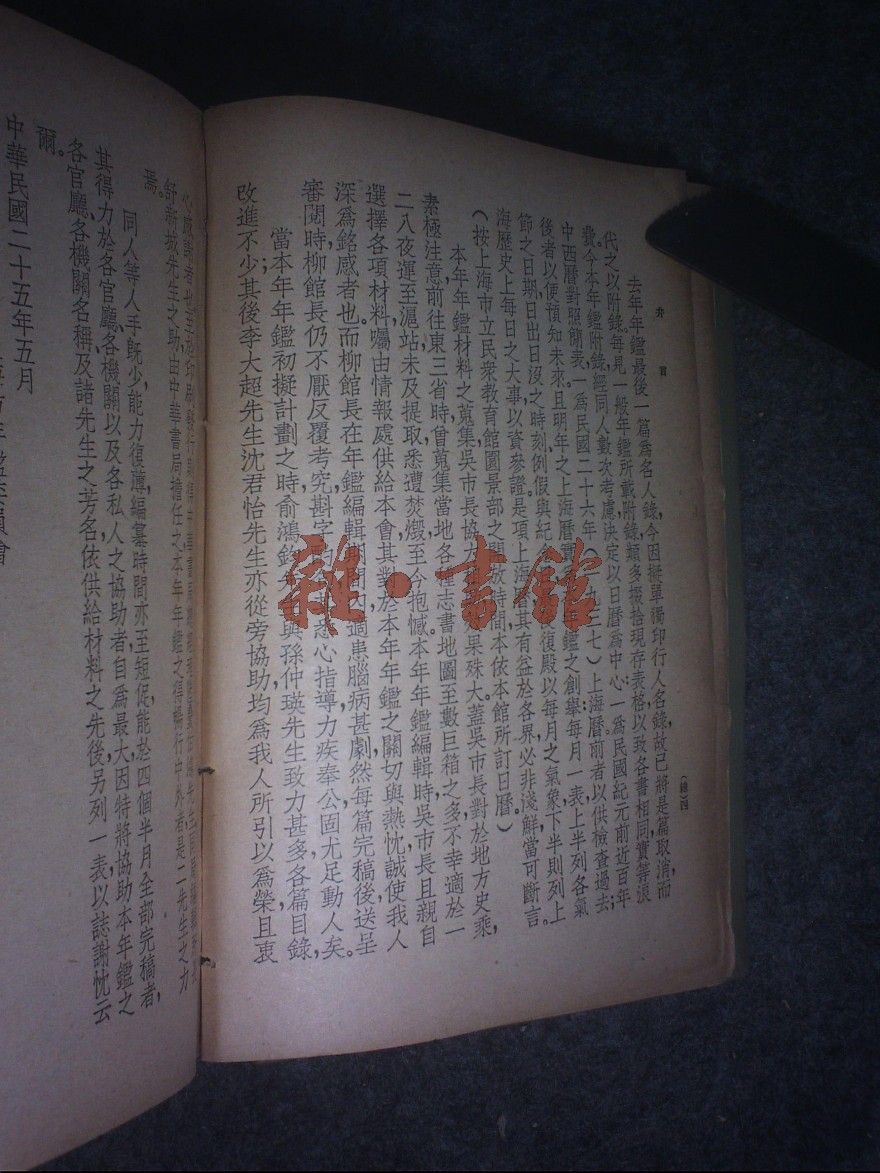 弁言
(總)四
去年年鑑最後一篇爲名人錄,今因擬單獨印行人名錄,故已將是篇取消,而
代之以附錄。每見一般年鑑所載附錄,類多掇拾現存表格,以致各書相同,實等浪
費。今本年鑑附錄,經同人數次考慮,決定以日曆爲中心:一爲民國紀元前近百年
中西曆對照簡表,一爲民國二十六年(一九三七)上海曆。前者以供檢查過去;
後者以便預知未來,且明年之上海曆,實 年鑑之創舉,每月一表,上半列各氣
節之日期,日出日沒之時刻,例假與紀 復殿以每月之氣象,下半則列上
海歷史上每日之大事,以資參證。是項上海曆,其有益於各界,必非淺鮮,當可斷言。
(按上海市立民衆教育館園景部之開放時間,本依本館所訂日曆)
本年年鑑材料之蒐集,吳市長協力 果殊大。蓋吳市長對於地方史乘,
素極注意,前往東三省時,曾蒐集當地各種志書地圖至數巨箱之多,不幸適於一
二八夜運至滬站,未及提取,悉遭焚燬,至今抱憾。本年年鑑編輯時,吳市長且親自
選擇各項材料,囑由情報處供給本會,其對於本年年鑑之關切與熱忱,誠使我人
深爲銘感者也。而柳館長在年鑑編輯期間,適患腦病甚劇,然每篇完稿後,送呈
審閱時,柳館長仍不厭反覆考究,斟字 悉心指導,力疾奉公,固尤足動人矣。
當本年年鑑初擬計劃之時,俞鴻鈞先生與孫仲瑛先生致力甚多,各篇目錄,
改進不少;其後李大超先生沈君怡先生亦從旁協助,均爲我人所引以爲榮且衷
心感謝者也。至於印刷發行 中華書局
舒新城先生之助,由中華書局擔任之,本年年鑑之得暢行中外者,是二先生之力
焉。
同人等人手既少,能力復薄,編纂時間,亦至短促,能於四個半月全部完稿者,
其得力於各官廳各機關以及各私人之協助者,自爲最大,因特將協助本年鑑之
各官廳各機關名稱,及諸先生之芳名,依供給材料之先後,另列一表,以誌謝忱云
爾。
中華民國二十五年五月
雜·書館